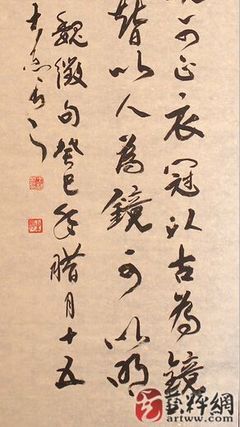 可正衣冠以古為鏡
替以人為鏡可以明
魏徵句癸巳年臘月十五
艺粹网
www.artww.com